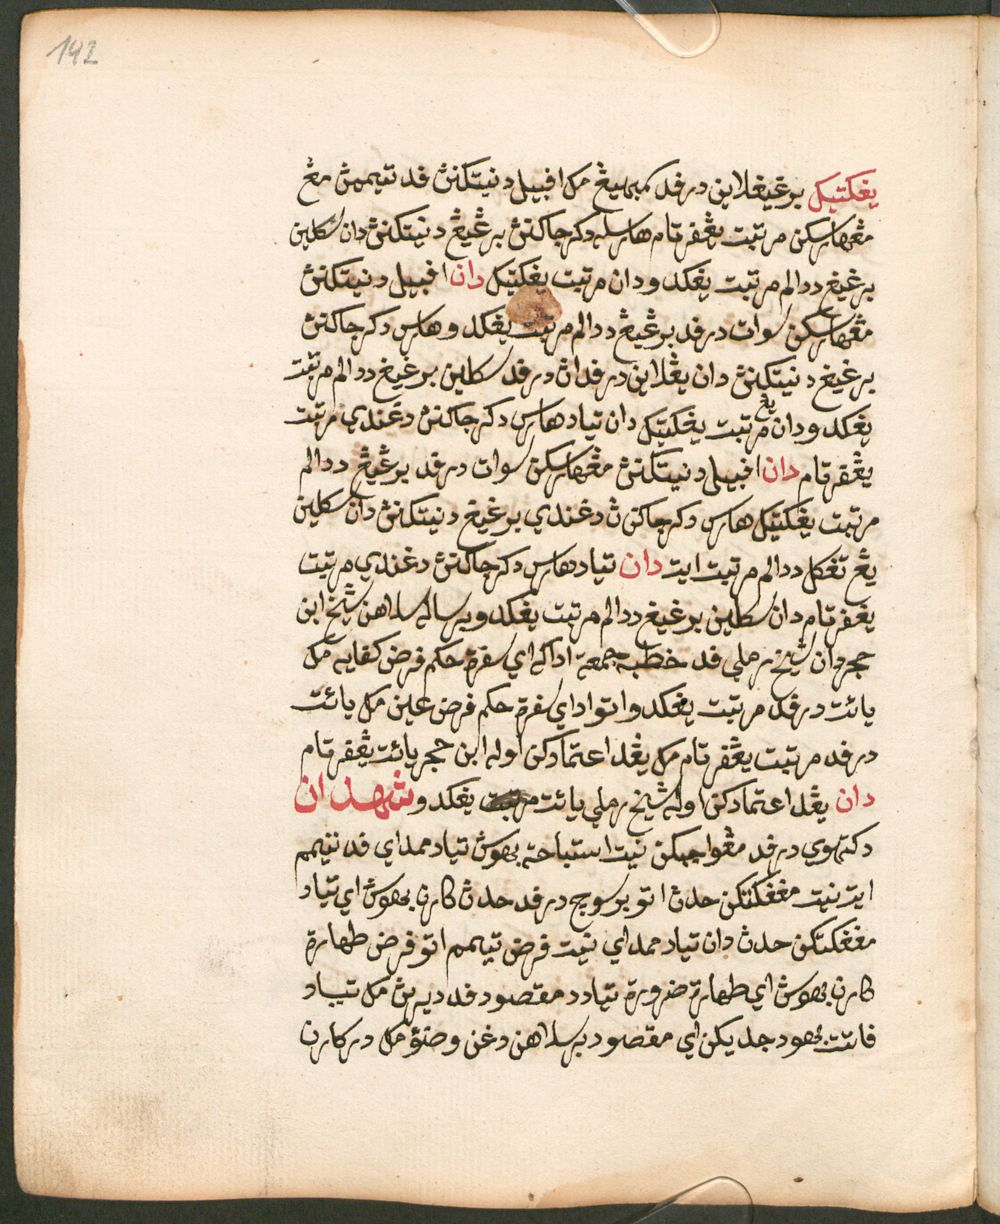 142
يڠكتيݢ برڠيڠلاين درفد كمبهيڠ مك اڤبيل دنيتكنڽ ڤد تيممڽ مڠ
مڠهارسكن مرتبت يڠڤرتام هارسله دكرجاكنڽ برڠيڠ دنيتكنڽ دان سكلين
برڠيڠ ددالم مرتبت يڠكدو دان مرتبت يڠكتيݢ دان اڤبيل دنيتكنڽ
مڠهارسكن سوات درفد برڠيڠ ددالم مرتبت يڠكدو هارس دكرجاكنڽ
برڠيڠ دنيتكنڽ دان يڠلاين درفدان درفد سكلين برڠيڠ ددالم مرتبت
يڠكدو دان يڠ مرتبت يڠكتيݢ دان تياد هارس دكرجاكنڽ دڠندي مرتبت
يڠڤرتام دان اڤبيل دنيتكنڽ مڠهارسكن سوات درفد برڠيڠ ددالم
مرتبت يڠكتيݢ هارس دكرجاكن ڽ دڠندي برڠيڠ دنيتكنڽ دان سكلين
يڠ تڠكل ددالم مرتبت ايت دان تياد هارس دكرجاكنڽ دڠندي مرتبت
يڠڤرتام دان سكلين برڠيڠ ددالم مرتبت يڠكدو برساله سلاهن شيخ ابن
حجر دان شيخ رملي ڤد خطبه جمعة اداكه اي سڤرة حكم فرض كفايه مك
يائت درفد مرتبت يڠكدو اتو اداي سڤرة حكم فرض عين مك يائت
درفد مرتبت يڠڤرتام مك يڠد اعتمادكن اوله ابن حجر يائت يڠڤرتام
دان يڠد اعتمادكن اوله شيخ رملي يائت مرتبت يڠكدو شهدان
دكتهوي درفد مڠواجبكن نيت استباحة بهوس تياد ممداي ڤد تيمم
ايت نيت مڠڠكتكن حدث اتو برسوچ درفد حدث كارن بهوس اي تياد
مڠڠكتكن حدث دان تياد ممداي نيت فرض تيمم اتو فرض طهارة
كارن بهوس اي طهارة ضرورة تياد د مقصود ڤد ديرڽ مك تياد
ڤائت بهود جديكن اي مقصود برسلاهن دڠن وضوء مك دركارن